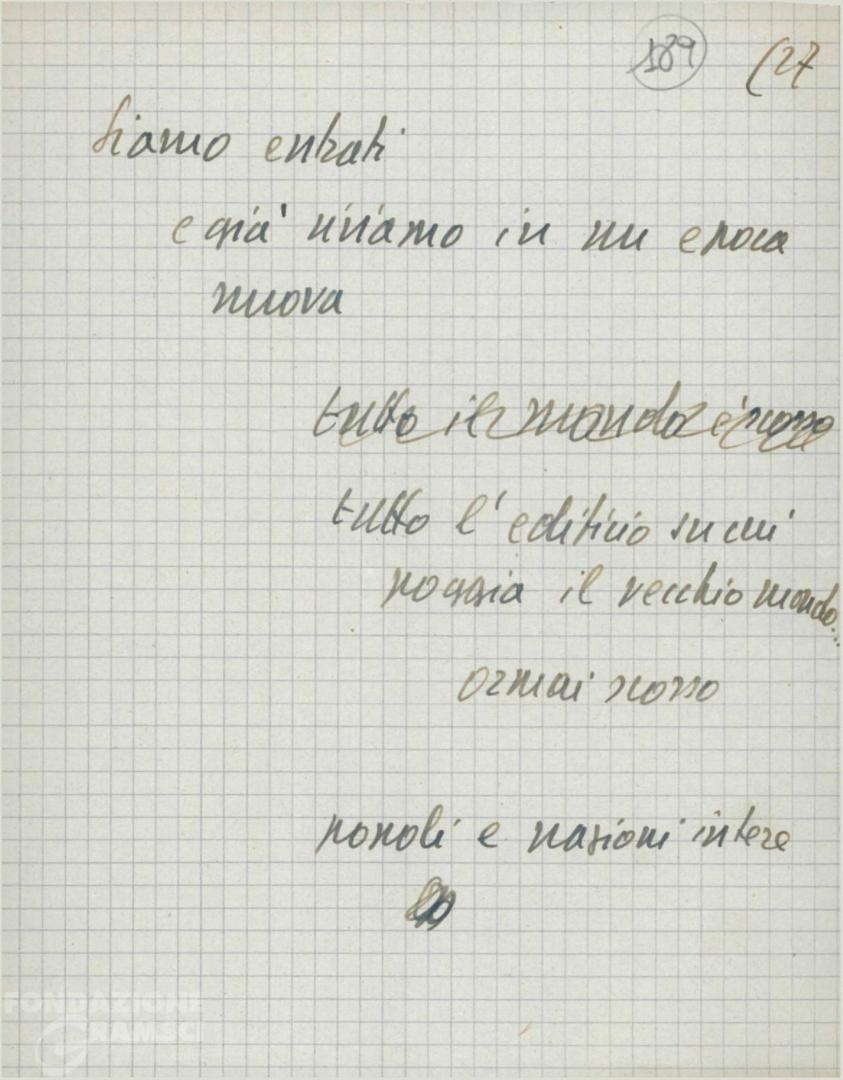 189 (27
Siamo entrati
e già viviamo in un epoca
nuova
tutto il mondo è scosso
tutto l'edificio su cui
poggia il vecchio mondo...
ormai scosso
popoli e nazioni intere
FONDAZIONE
GRAMSCI